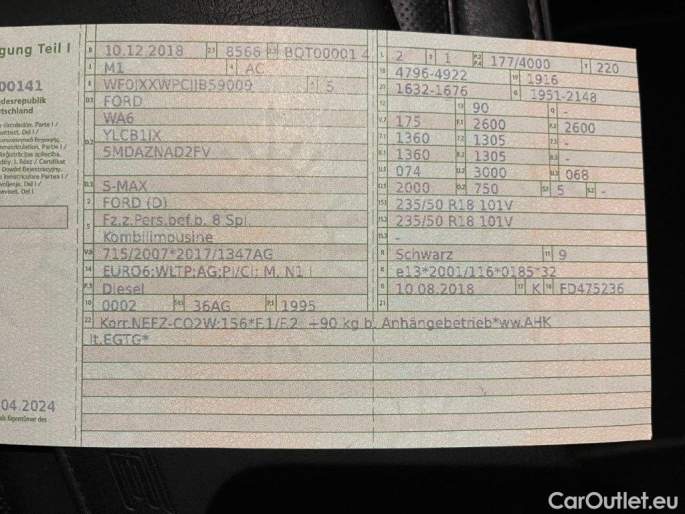 gung Teil I
00141
desrepublik
utschland
.04.2024
als Eigentümer des
B 10.12.2018 2.1 8566 2.2 BQT00001 4
J M1 4 AC
E 3 5
D.1 FORD
WA6
D.2 YLCB1JX
5MDAZNAD2FV
D.3 S-MAX
2 FORD (D)
5 Fz.z.Pers.bef.b. 8 Spl.
Kombilimousine
V.9 715/2007*2017/1347AG
14 EURO6;WLTP;AG;PI/CI; M, N1 I
P.3 Diesel
10 0002 14.1 36AG P.1 1995
L 2 9 1 P.2 P.4 177/4000 T 220
18 4796-4922 19 1916
20 1632-1676 G 1951-2148
12 - 13 90 Q -
V.7 175 F.1 2600 F.2 2600
7.1 1360 7.2 1305 7.3 -
8.1 1360 8.2 1305 8.3 -
U.1 074 U.2 3000 U.3 068
O.1 2000 O.2 750 S.1 5 S.2 -
15.1 235/50 R18 101V
15.2 235/50 R18 101V
15.3 -
R Schwarz 11 9
K e13*2001/116*0185*32
6 10.08.2018 17 K 16 FD475236
21
22 Korr.NEFZ-CO2W:156*F.1/F.2: +90 kg b. Anhängebetrieb*ww.AHK
lt.EGTG*
CarOutlet.eu